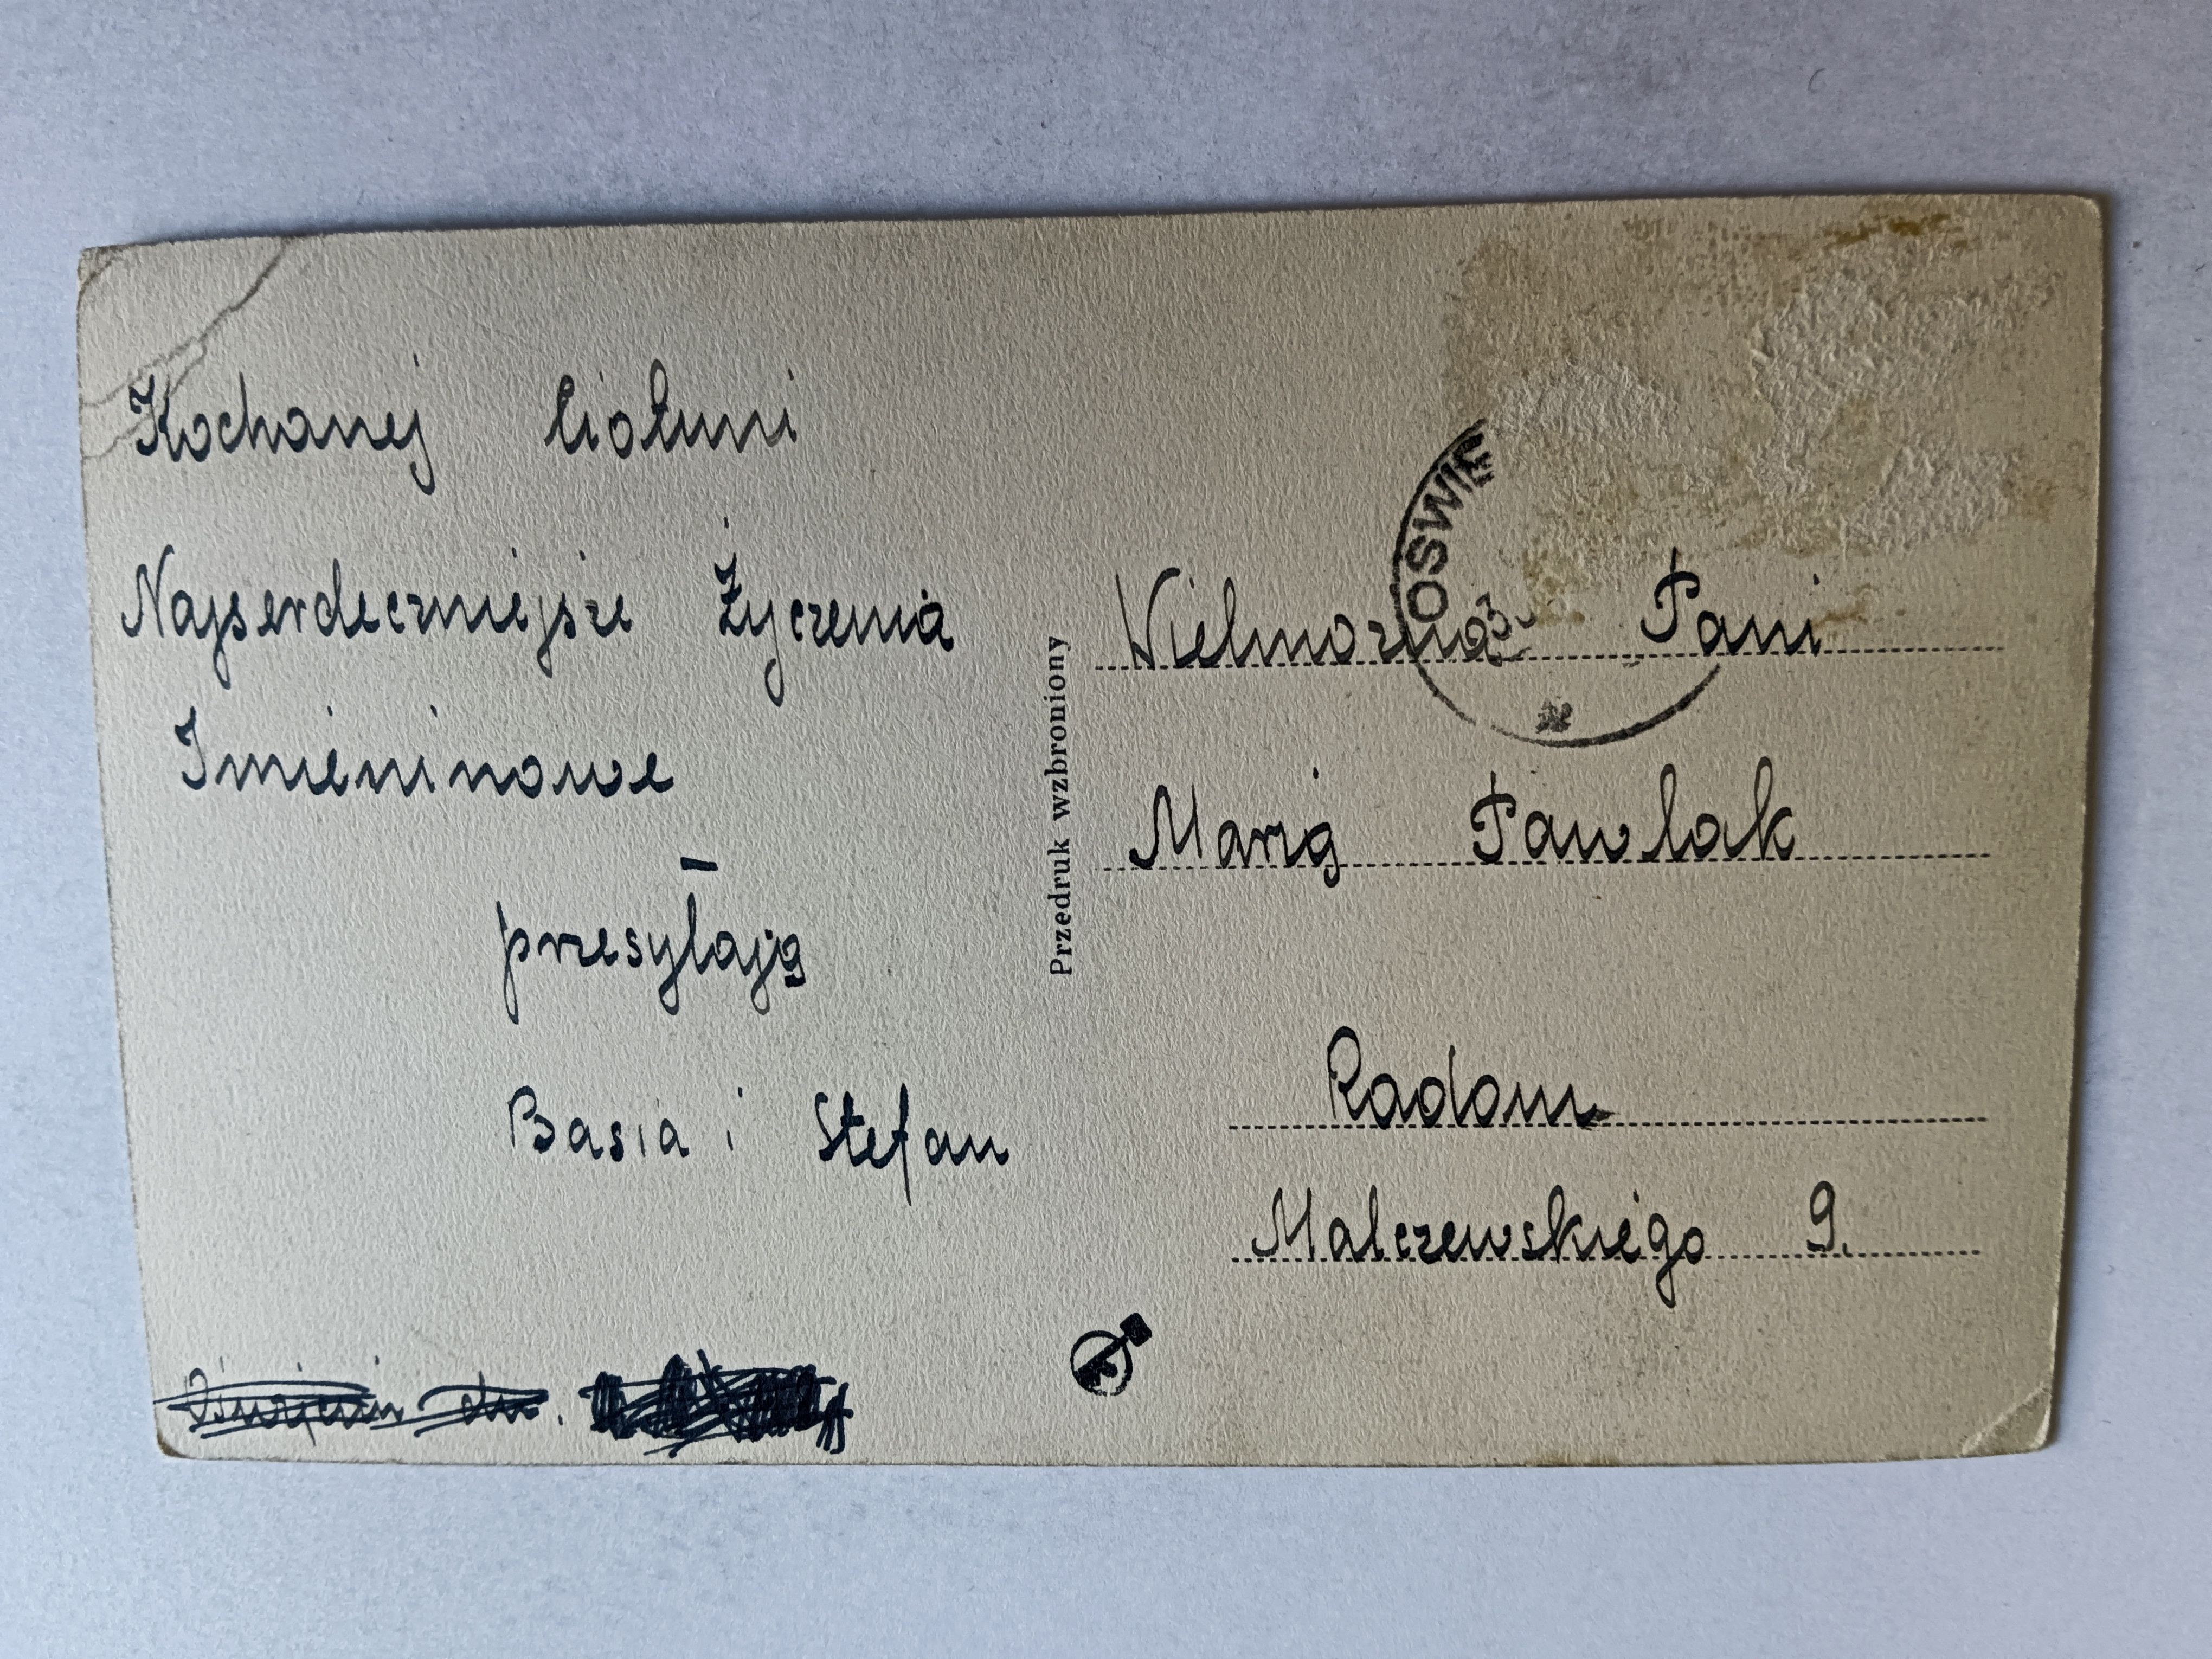 Kochanej Ciotuni
Najserdeczniejsze Życzenia
Imieninowe
—
przesyłają
Basia i Stefan
Przedruk wzbroniony
OSWIĘ
Wielmożna Pani
Marią Pawlak
Radom
Malczewskiego 9.